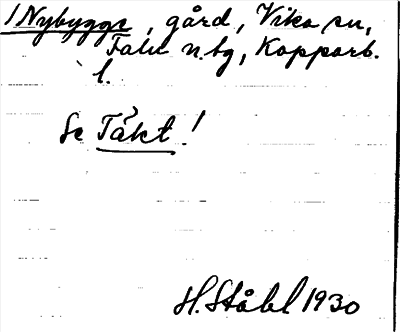 /Nybygge, gård, Vika sn,
Falu n. tg, Kopparb.
l.
Se Täkt!
H. Ståhl 1930